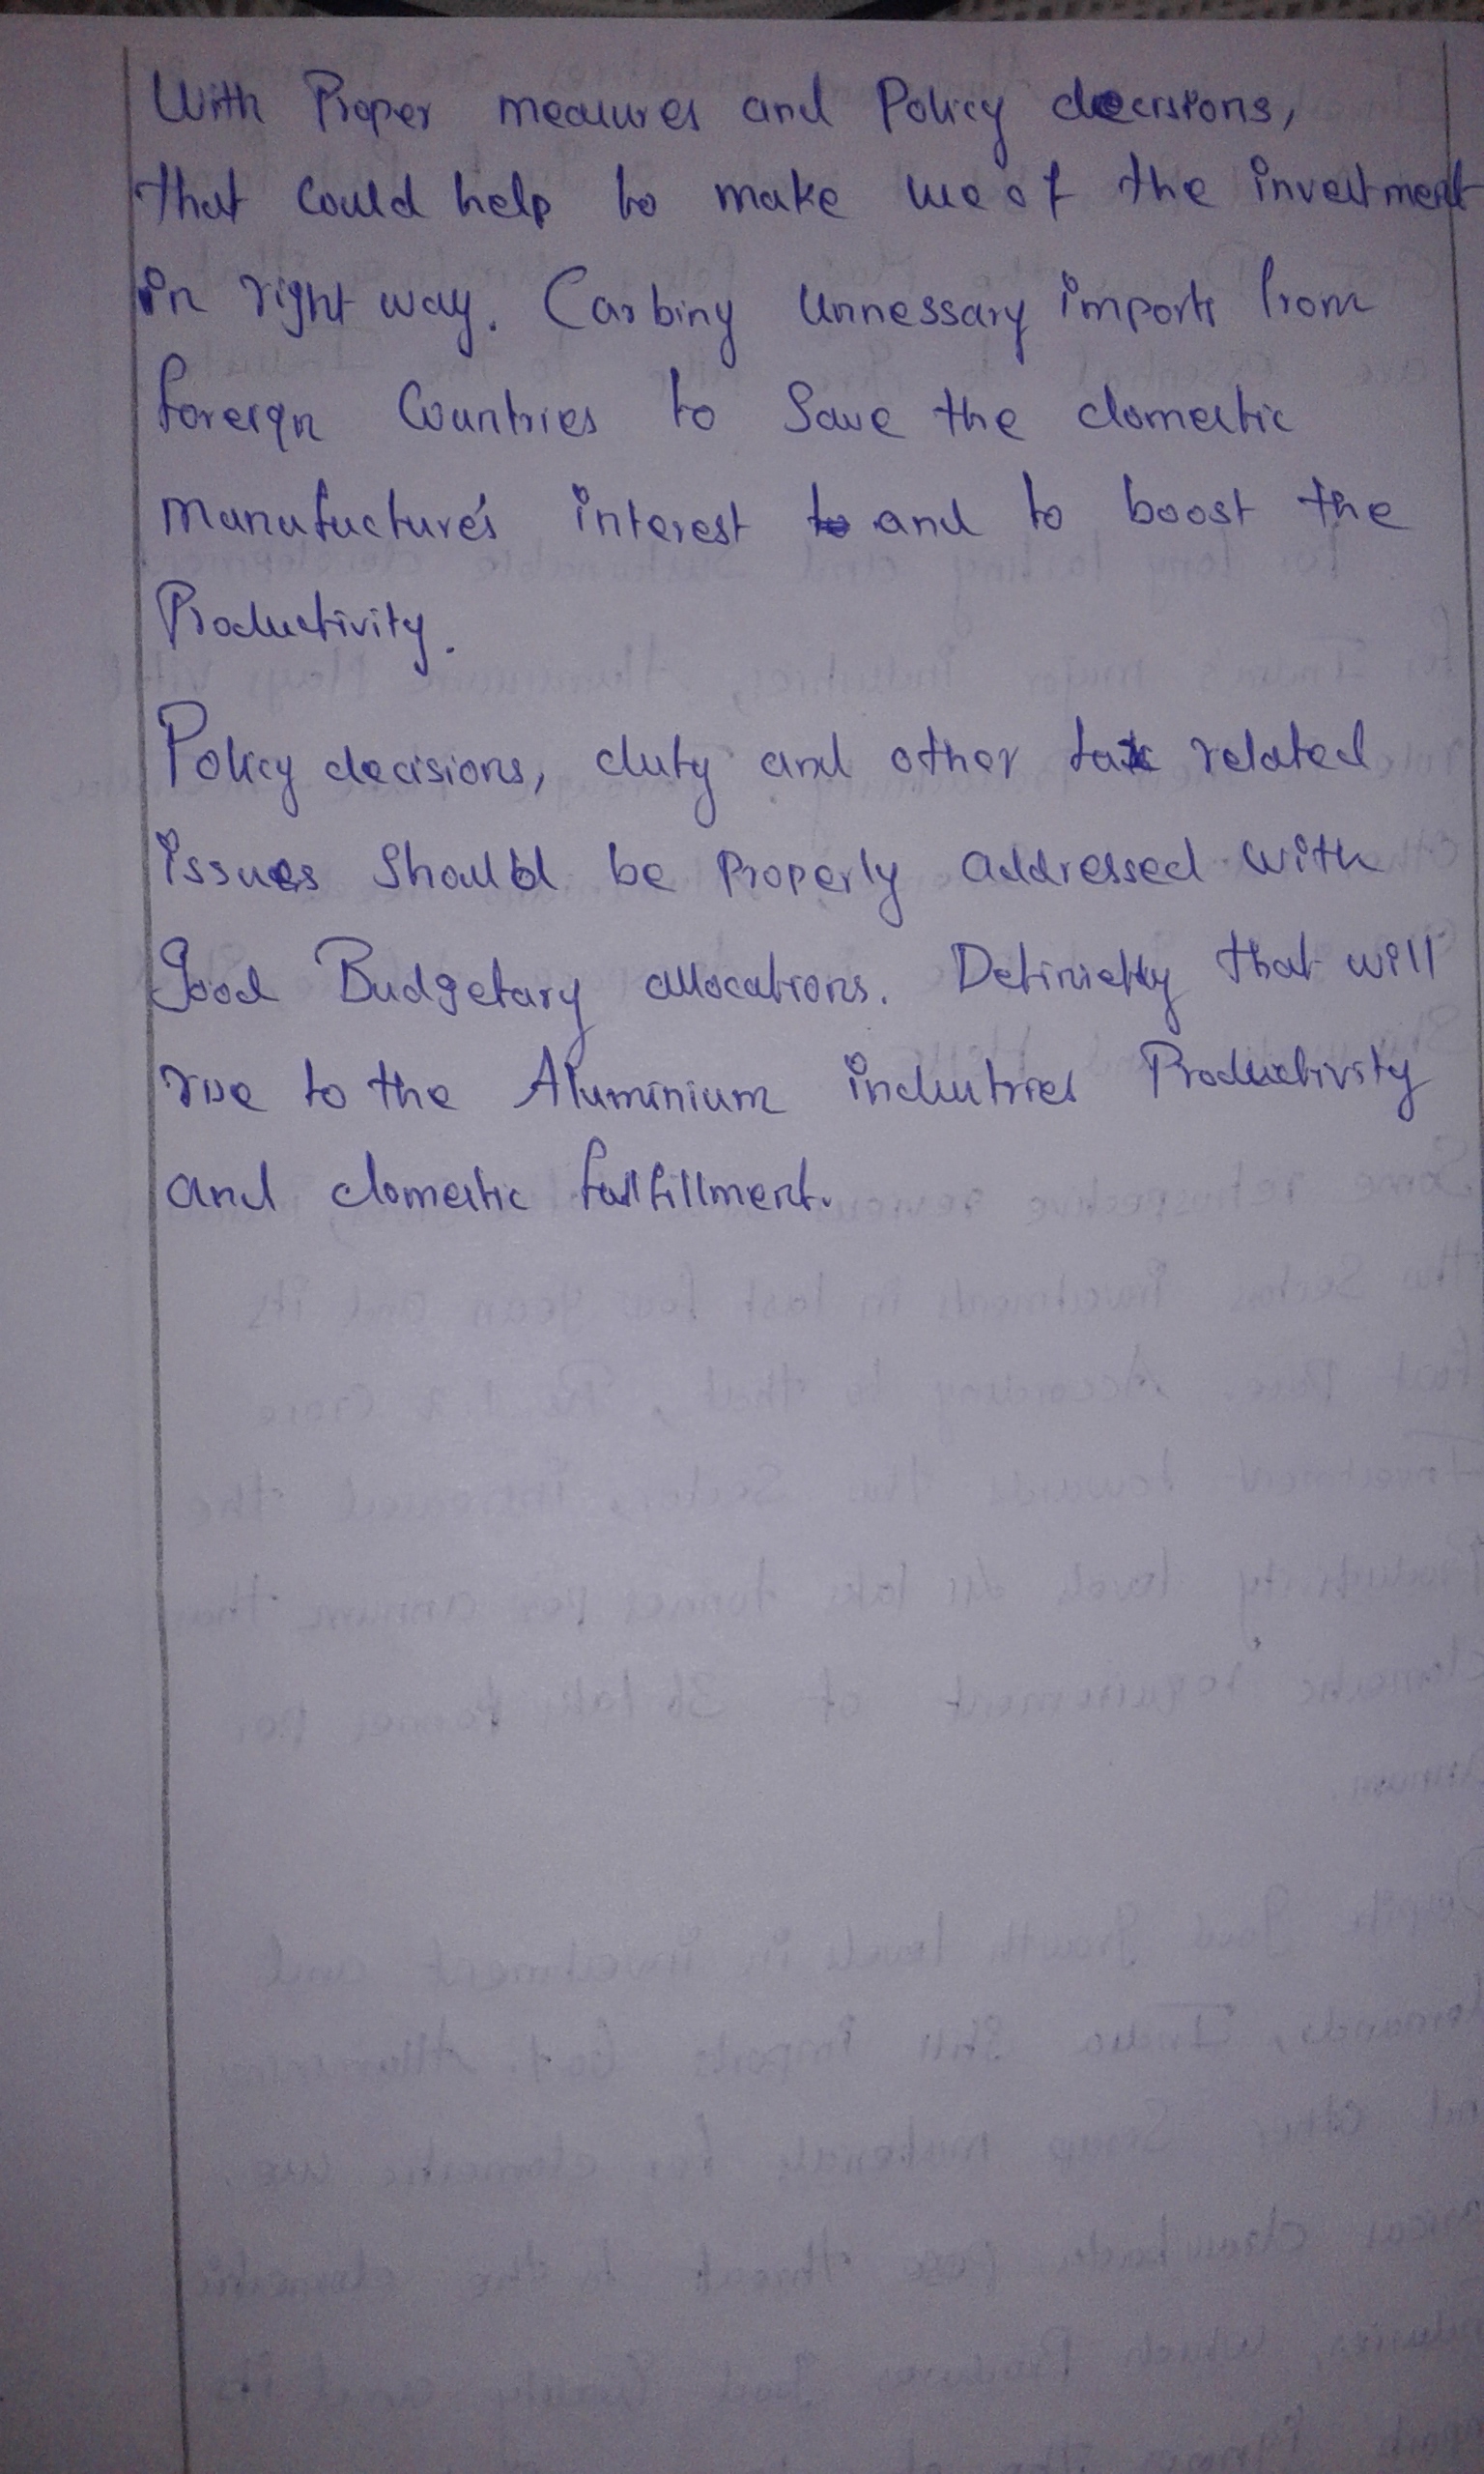 With Proper measures and Policy decisions,
that could help to make use of the investment
in right way. Carbing unnessary imports from
foreign Countries to Save the domestic
manufacture's interest to and to boost the
Productivity.
Policy decisions, duty and other tax related
issues should be properly addressed with
good Budgetary allocations. Definietly that will
rise to the Aluminium industries Productivity
and domestic fullfillment.